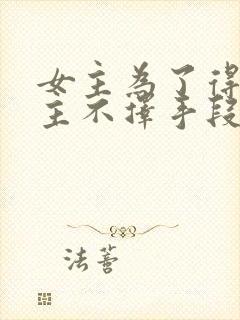 女主為了得
主不擇手段
法蓍